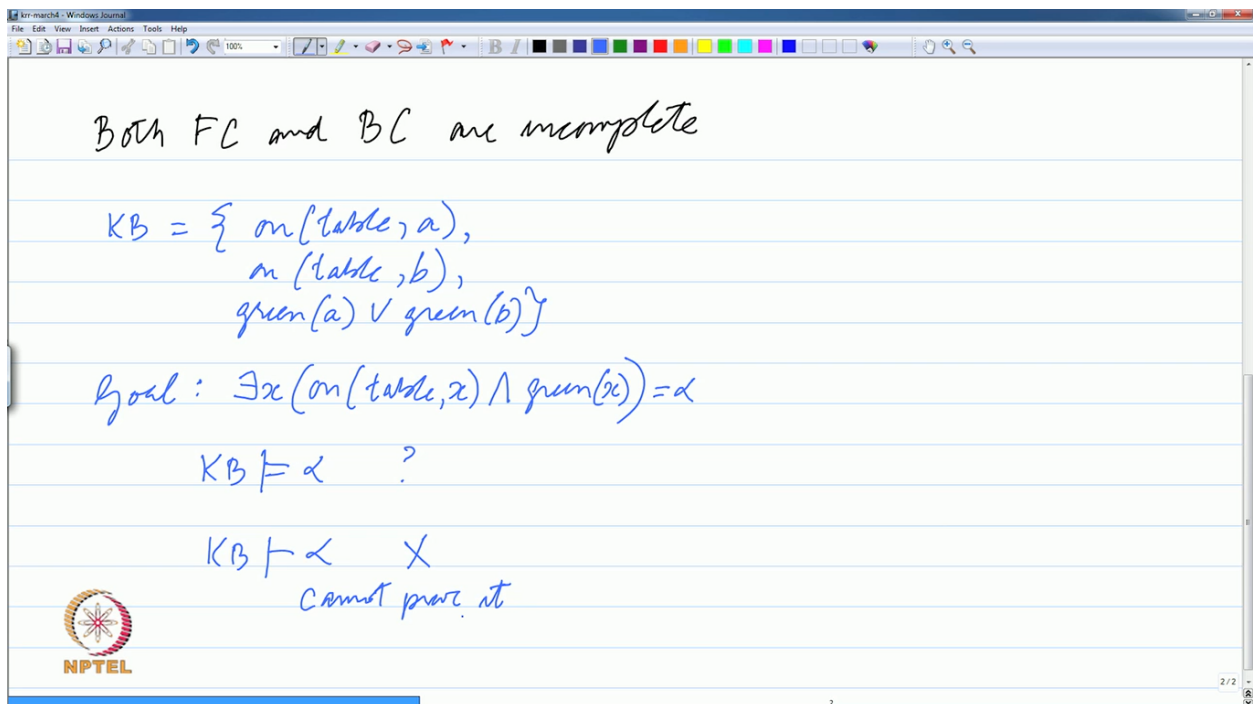 krr-march4 - Windows Journal
File Edit View Insert Actions Tools Help
100%
B I
Both FC and BC are incomplete
KB = { on(table, a),
on(table, b),
green(a) ∨ green(b)}
Goal: ∃x(on(table, x) ∧ green(x)) = α
KB ⊨ α ?
KB ⊢ α X
cannot prove it
NPTEL
2/2